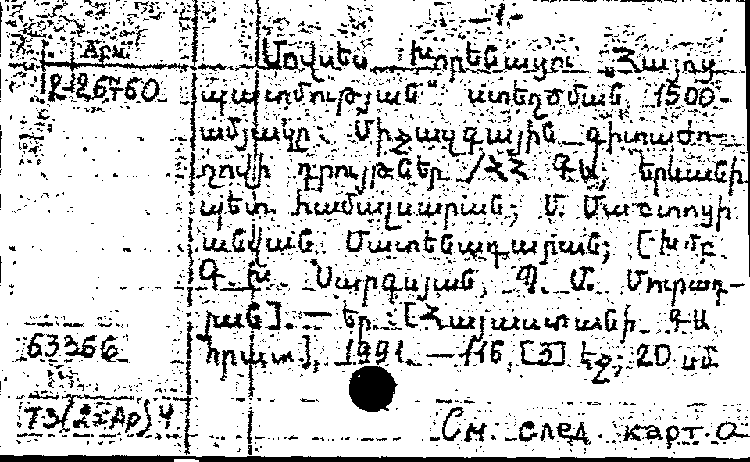 -1-
Арм.
2-26760
Մովսես Խորենացու „Հայոց
պատմության“ ստեղծման 1500-
ամյակը: Միջազգային գիտաժո-
ղովի դրույթներ /ՀՀ ԳԱ; Երևանի
պետ. համալսարան; Մ. Մաշտոցի
անվան Մատենադարան; [Խմբ.
Գ. Խ. Սարգսյան, Պ. Մ. Մուրադ-
յան]. — Եր.: [Հայաստանի ԳԱ
հրատ.], 1991. — 116, [3] էջ; 20 սմ
63366
ТЗ(2=Ар)4
См. след. карт.